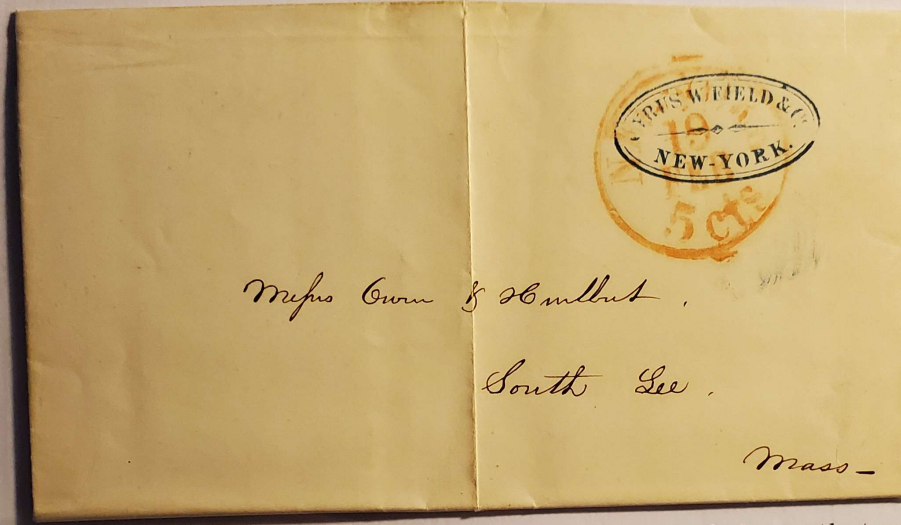 CYRUS W. FIELD & Co.
NEW-YORK.
N
19
5 cts
Messrs Owen & Hurlbut.
South Lee.
Mass-